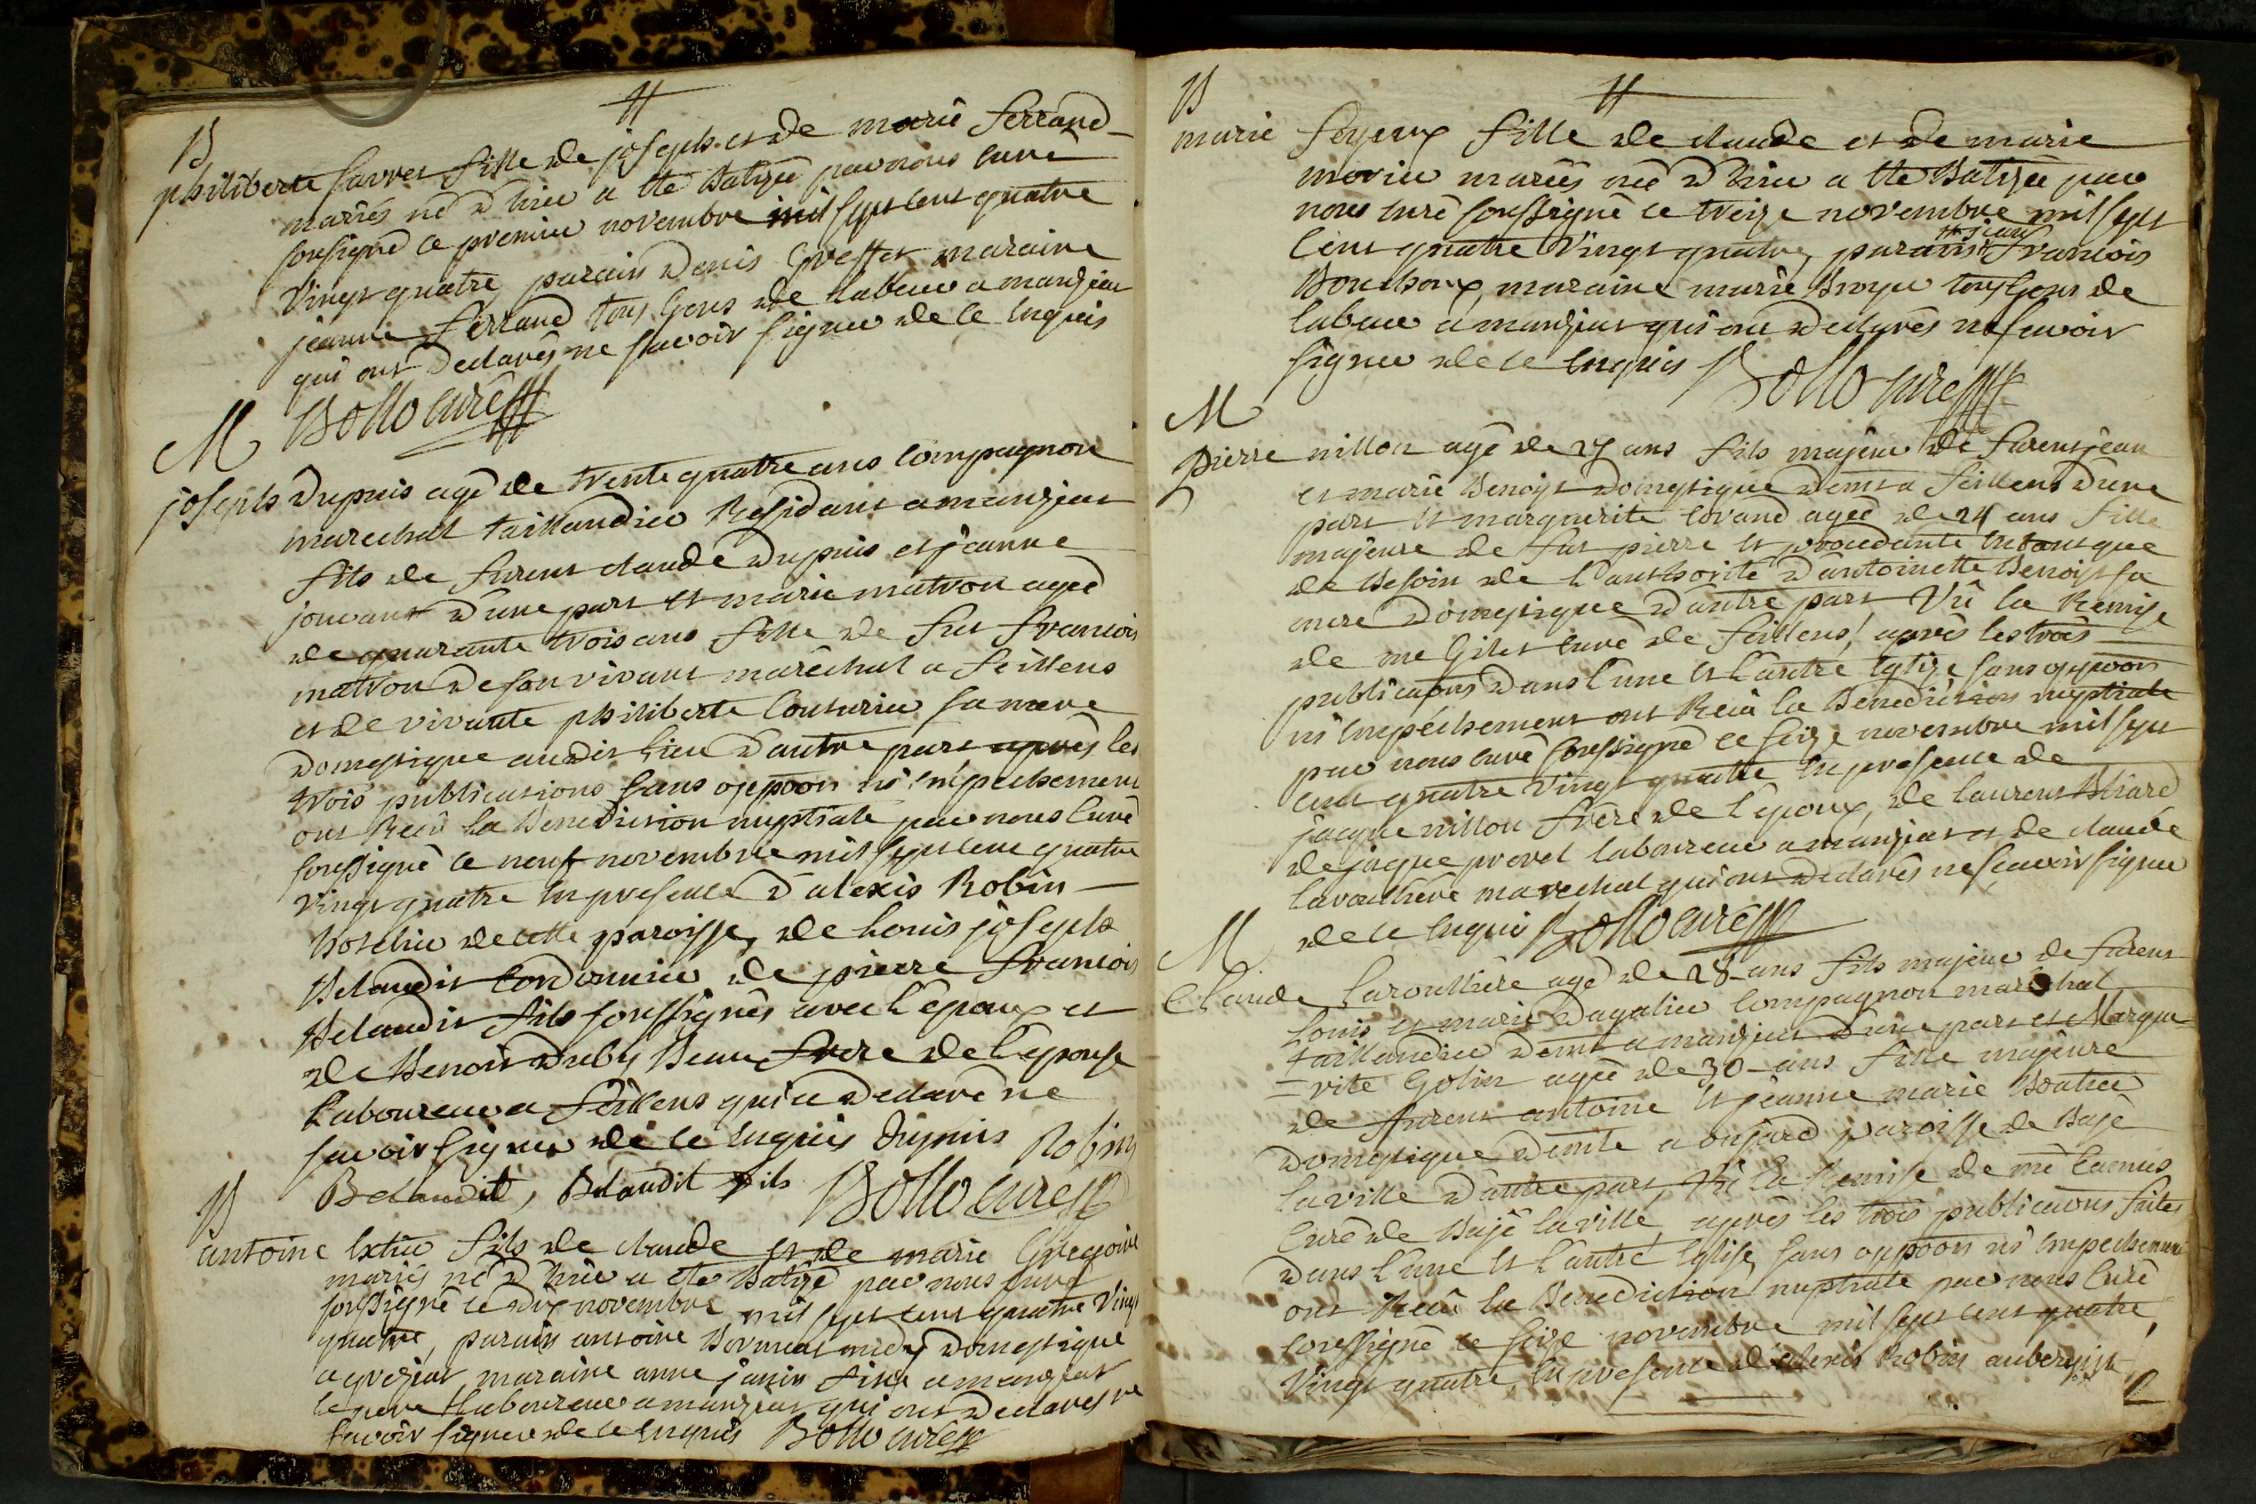 B
philiberte favret fille de joseph et de marie ferrand
mariés né d'hier a été Batizée par nous curé
soussigné ce premier novembre mil sept cent quatre
vingt quatre, parain denis Greffet maraine
jeanne ferrand tous Gens de labeur a manziat
qui ont declarés ne savoir signer de ce enquis
Bollo curé
M
joseph dupuis agé de trente quatre ans compagnon
marechal taillandier Residant a manziat
fils de furent claude dupuis et jeanne
jouvant d'une part et marie matron agée
de quarante trois ans fille de fut francois
matron de son vivant maréchal a feillens
et de vivante philiberte Couturier sa mere
domestique audit lieu d'autre part après les
trois publications sans oppoon ni empechement
ont Reçû la Benediction nuptiale par nous curé
soussigné ce neuf novembre mil sept cent quatre
vingt quatre en presence d'alexis Robin
hotelier de cette paroisse, de Louis joseph
Belaudit Cordonnier de pierre francois
Belaudit fils soussignés avec l'époux et
de Benoit duby Beau frere de l'épouse
laboureur a feillens qui a declaré ne
savoir signer de ce enquis Dupuis Robin
Belaudit, Belaudit fils Bollo curé
B
antoine Extier fils de claude et de marie Gregoire
mariés né d'hier a été Batizé par nous curé
soussigné ce dix novembre mil sept cent quatre vingt
quatre, parain antoine domestique
a maraine anne janin fille a manziat
le pere laboureur a manziat qui ont declarés ne
savoir signer de ce enquis Bollo curé
B
marie feyeux fille de claude et de marie
morier mariés née d'hier a été Batizée par
nous curé soussigné ce treize novembre mil sept
cent quatre vingt quatre, parain jean francois
Bouchoux, maraine marie Broyer tous Gens de
labeur a manziat qui ont declarés ne savoir
signer de ce enquis Bollo curé
M
pierre nillon agé de 27 ans fils majeur de furent jean
et marie Benoist domestique demt a feillens d'une
part et marguerite Corand agée de 24 ans fille
majeure de fut pierre et procedante entant que
de Besoin de l'authorité d'antoinette Benoist sa
mere domestique d'autre part Vû la Remise
de me Gilet curé de feillens, après les trois
publicaons dans l'une et l'autre Eglize sans oppoon
ni empêchement ont Reçû la Benediction nuptiale
par nous curé soussigné ce seize novembre mil sept
cent quatre vingt quatre en presence de
jacque nillon frere de l'époux, de laurent Biard
de jacque provet laboureur a manziat et de claude
Laroulliere marechal qui ont declarés ne sçavoir signer
de ce enquis Bollo curé
M
Claude Laroulliere agé de 28 ans fils majeur de furent
Louis et marie dagalier compagnon maréchal
taillandier demt a manziat d'une part et Margue
=rite Golin agée de 30 ans fille majeure
de furent antoine et jeanne marie Boatier
domestique demte a onjard paroisse de Bagé
la ville d'autre part, Vû la Remise de me Camus
Curé de Bagé la ville, après les trois publicaons faites
dans l'une et l'autre Eglise, sans oppoon ni empechement
ont Reçû la Benediction nuptiale par nous Curé
soussigné ce seize novembre mil sept cent quatre
Vingt quatre, en presence d'alexis Robin aubergiste